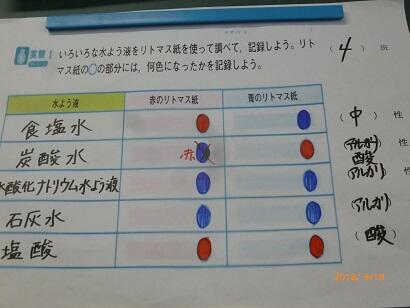 実験1 いろいろな水よう液をリトマス紙を使って調べて,記録しよう。リト
マス紙の●の部分には,何色になったかを記録しよう。
(4)班
水よう液 赤のリトマス紙 青のリトマス紙
食塩水 (中)性
炭酸水 赤 (アルカリ)性
酸
水酸化ナトリウム水よう液 (アルカリ)性
石灰水 (アルカリ)
塩酸 (酸)
2018/9/19